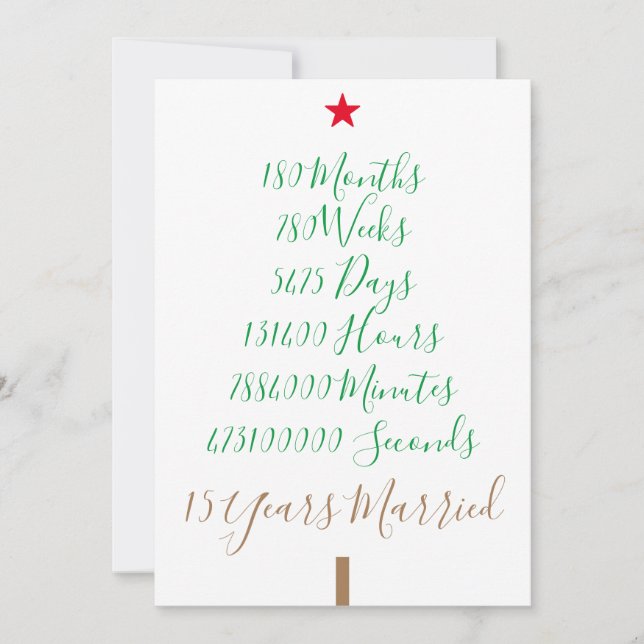 180 Months
780 Weeks
5475 Days
131400 Hours
7884000 Minutes
473100000 Seconds
15 Years Married